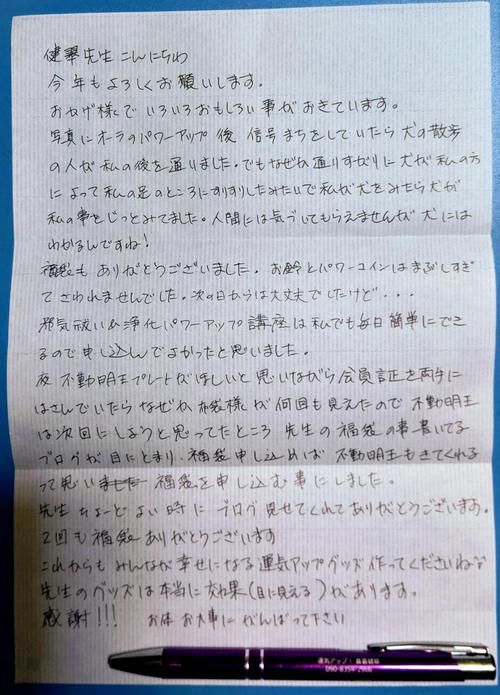 健翠先生 こんにちわ
今年もよろしくお願いします。
おかげ様でいろいろおもしろい事がおきています。
写真にオーラのパワーアップ後 信号まちをしていたら犬の散歩
の人が私の後を通りました。でもなぜか通りすがりに犬が私の方
によって私の足のところにすりすりしたみたいで私が犬をみたら犬が
私の事をじっとみてました。人間には気づいてもらえませんが犬には
わかるんですね!
福袋も ありがとうございました。お鈴とパワーコインはまぶしすぎ
てさわれませんでした。次の日からは大丈夫でしたけど・・・
邪気祓い&浄化パワーアップ講座は私でも毎日簡単にでき
るので申し込んでよかったと思いました。
夜 不動明王プレートがほしいと思いながら会員証を両手に
はさんでいたら なぜか 様が何回も見えたので不動明王
は次回にしようと思ってたところ 先生の福袋の事書いてる
ブログが目にとまり、福袋申し込めば 不動明王もきてくれる
って思い 福袋を申し込む事にしました。
先生 ちょーど よい時に ブログ見せてくれてありがとうございます。
2回も福袋ありがとうございます
これからも みんなが幸せになる運気アップグッズ作ってくださいねな
先生のグッズは本当に効果(目に見える)があります。
感謝!!! お体お大事に がんばって下さい
運気アップ!
090-8354-2966